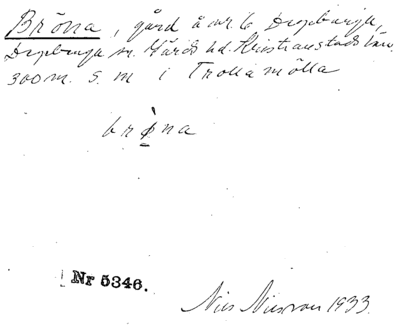 Bröna, gård å nr 6 Degeberga,
Degeberga sn. Gärds hd. Kristianstads län.
300 m. S. m i Trollamölla
brø̀na
Nr 5346.
Nils 1933.